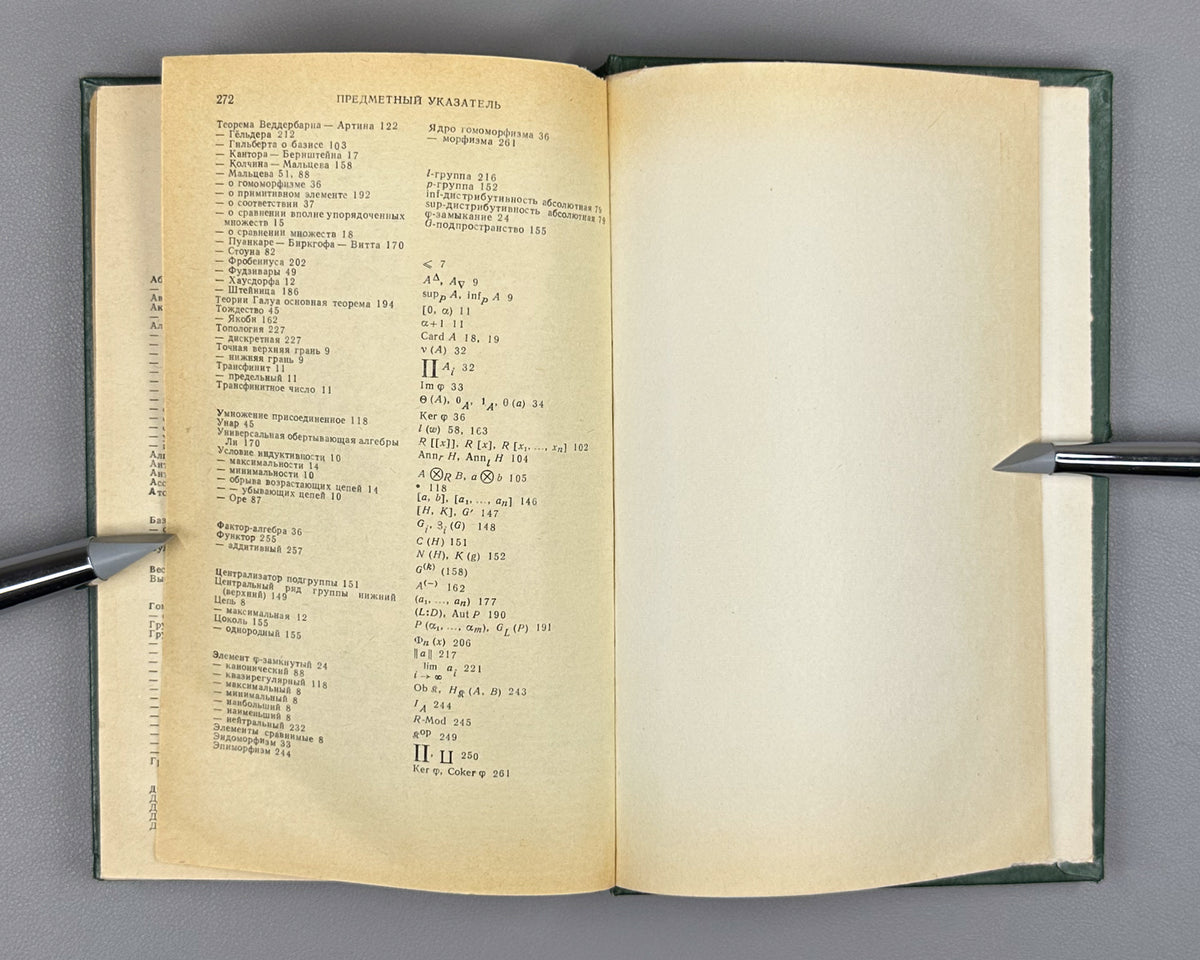 272
ПРЕДМЕТНЫЙ УКАЗАТЕЛЬ
Теорема Веддербарна — Артина 122
— Гёльдера 212
— Гильберта о базисе 103
— Кантора — Бернштейна 17
— Колчина — Мальцева 158
— Мальцева 51, 88
— о гомоморфизме 36
— о примитивном элементе 192
— о соответствии 37
— о сравнении вполне упорядоченных
множеств 15
— о сравнении множеств 18
— Пуанкаре — Биркгофа — Витта 170
— Стоуна 82
— Фробениуса 202
— Фудзивары 49
— Хаусдорфа 12
— Штейница 186
Теории Галуа основная теорема 194
Тождество 45
— Якоби 162
Топология 227
— дискретная 227
Точная верхняя грань 9
— нижняя грань 9
Трансфинит 11
— предельный 11
Трансфинитное число 11
Умножение присоединенное 118
Унар 45
Универсальная обертывающая алгебры
Ли 170
Условие индуктивности 10
— максимальности 14
— минимальности 10
— обрыва возрастающих цепей 14
— — убывающих цепей 10
— Оре 87
Фактор-алгебра 36
Функтор 255
— аддитивный 257
Централизатор подгруппы 151
Центральный ряд группы нижний
(верхний) 149
Цепь 8
— максимальная 12
Цоколь 155
— однородный 155
Элемент φ-замкнутый 24
— канонический 88
— квазирегулярный 118
— максимальный 8
— минимальный 8
— наибольший 8
— наименьший 8
— нейтральный 232
Элементы сравнимые 8
Эндоморфизм 33
Эпиморфизм 244
Ядро гомоморфизма 36
— морфизма 261
l-группа 216
p-группа 152
inf-дистрибутивность абсолютная 79
sup-дистрибутивность абсолютная 79
φ-замыкание 24
G-подпространство 155
⩽ 7
A^Δ, A_∇ 9
sup_P A, inf_P A 9
[0, α) 11
α+1 11
Card A 18, 19
ν (A) 32
∏ A_i 32
Im φ 33
Θ (A), 0_A, 1_A, θ (a) 34
Ker φ 36
l (w) 58, 163
R [[x]], R [x], R [x₁, ..., xₙ] 102
Ann_r H, Ann_l H 104
A ⊗_R B, a ⊗ b 105
∘ 118
[a, b], [a₁, ..., aₙ] 146
[H, K], G′ 147
G_i, З_i (G) 148
C (H) 151
N (H), K (g) 152
G^(k) (158)
A^(−) 162
(a₁, ..., aₙ) 177
(L:D), Aut P 190
P (α₁, ..., α_m), G_L (P) 191
Φₙ (x) 206
‖a‖ 217
lim a_i 221
i → ∞
Ob 𝔎, H_𝔎 (A, B) 243
I_A 244
R-Mod 245
𝔎^op 249
∏, ∐ 250
Ker φ, Coker φ 261
Аб
Ав
Ак
Ал
Ато
Баз
Вес
Вы
Гру
Гру
Гр
Д
Д
Д
Д